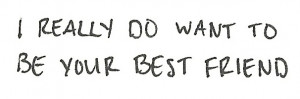 I REALLY DO WANT TO
BE YOUR BEST FRIEND